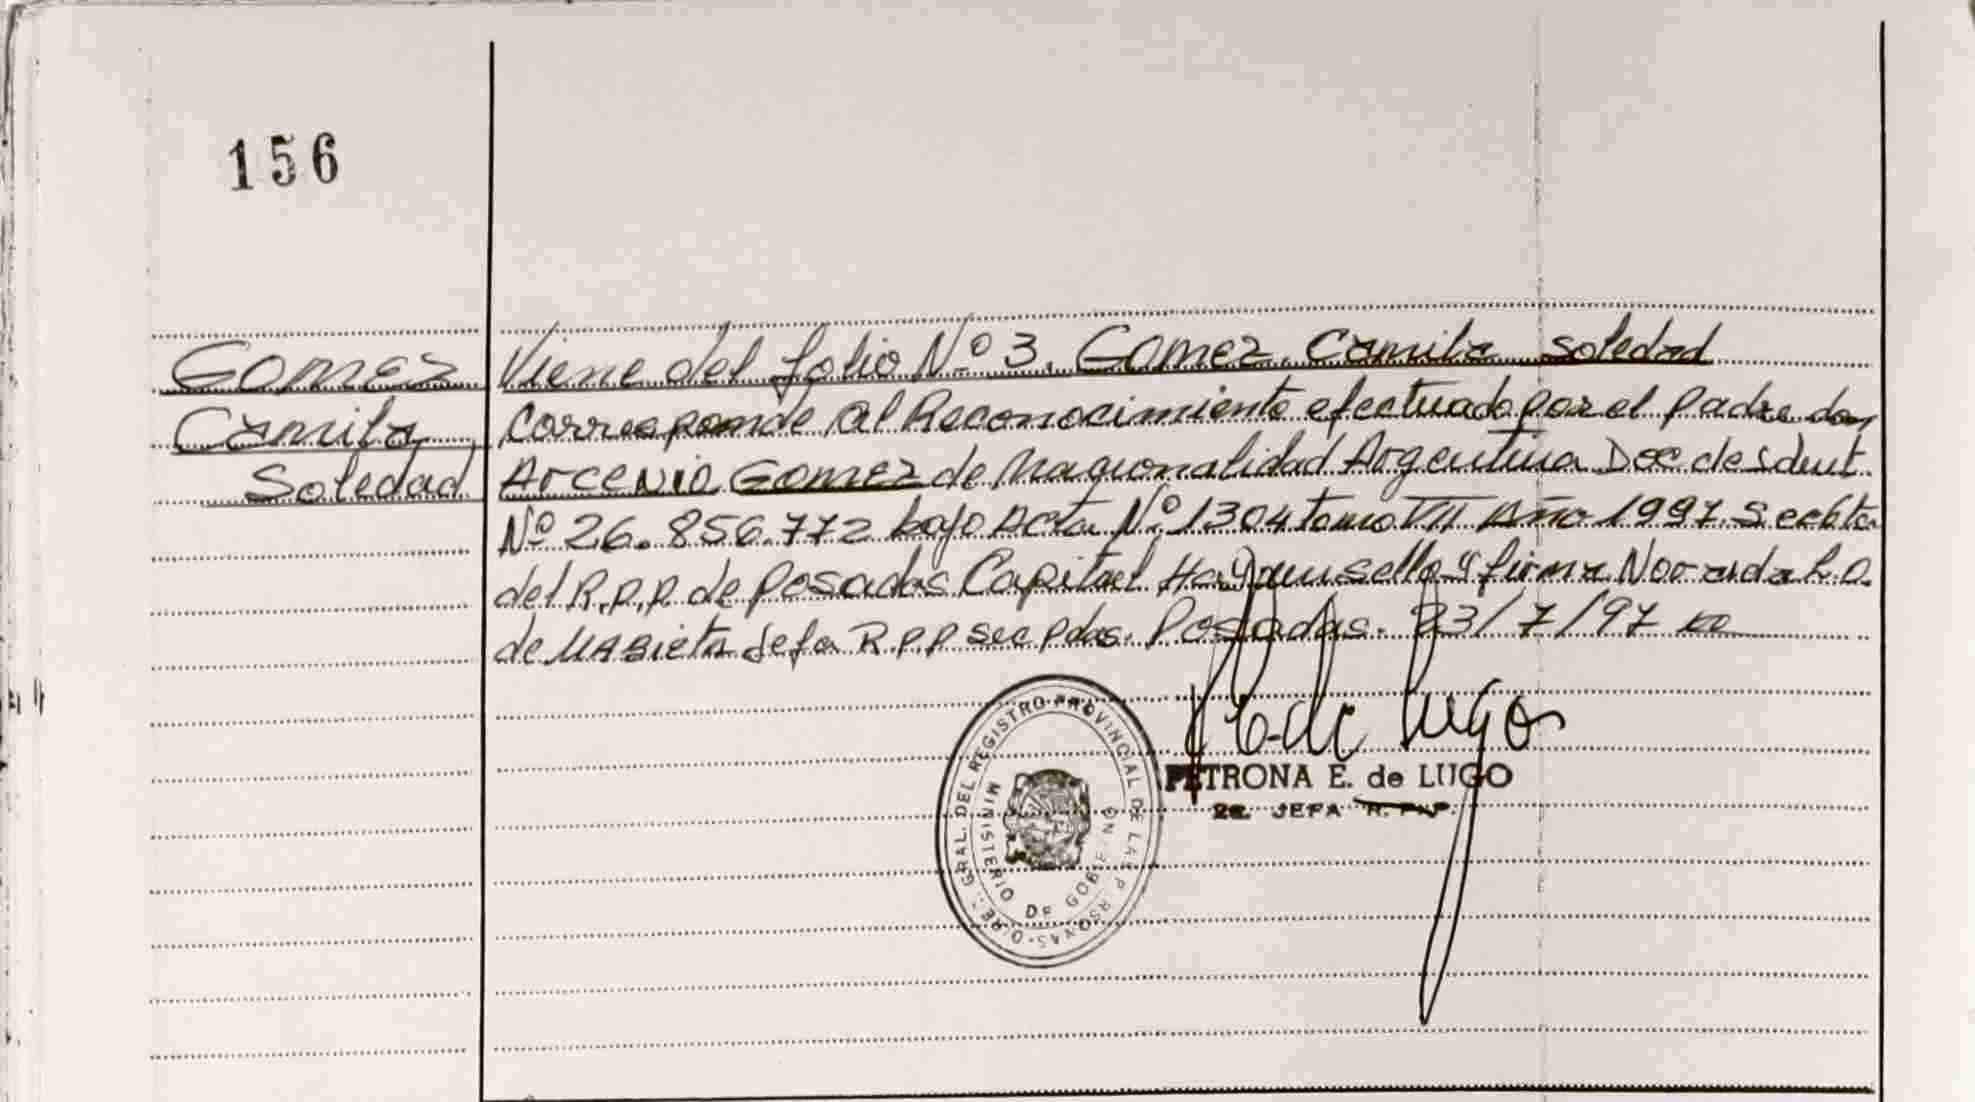 156
Gomez
Camila
Soledad
Viene del folio Nº 3. Gomez Camila Soledad
Corresponde al Reconocimiento efectuado por el padre don
Arcenio Gomez de Nacionalidad Argentina Doc de Ident.
Nº 26.856.772 bajo Acta Nº 1304 tomo VII Año 1997. Sec 6ta
del R.P.P. de Posadas Capital Hay un sello y firma Nora
de Jefa R.P.P sec Pdas. Posadas. 23/7/97
E. de Lugo
PETRONA E. de LUGO
JEFA R. P. P.
GRAL. DEL REGISTRO PROVINCIAL DE LAS PERSONAS
MINISTERIO DE GOBIERNO